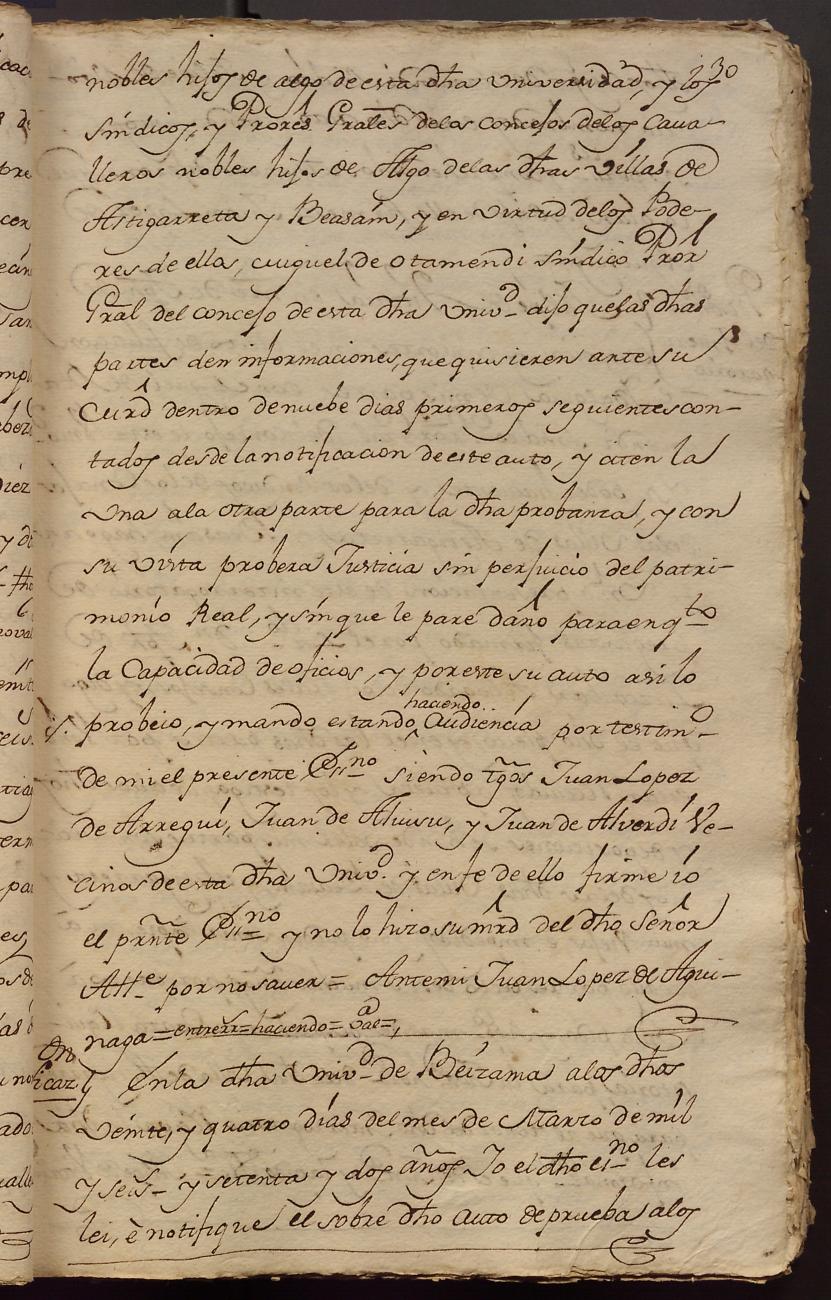 130
nobles hijos de algo de esta dha Universidad, y los
síndicos, y Prores Grales de los concejos de los Cava-
lleros nobles hijos de Algo de las dhas villas de
Astigarreta y Beasaín, y en virtud de los Pode-
res de ellos, Miguel de Otamendi síndico Pror
Gral del concejo de esta dha Univd. dijo que las dhas
partes den informaciones, que quisieren ante su
Mrd dentro de nuebe dias primeros seguientes con-
tados desde la notificacion de este auto, y citen la
una a la otra parte para la dha probanza, y con
su vista probera Justicia sin perjuicio del patri-
monio Real, y sin que le pare daño para en qto
la Capacidad de oficios, y por este su auto asi lo
probeio, y mando estando haciendo Audiencia por testimo
de mi el presente Essno siendo tgõs Juan Lopez
de Arregui, Juan de Aluisu, y Juan de Alverdi Ve-
cinos de esta dha Univd. y en fe de ello firme io
el prñte Essno y no lo hizo su mrd del dho Señor
Alle por no saver = Ante mi Juan Lopez de Agui-
naga = entrerr = haciendo = Vae =,
En la dha Univd de Beizama a los dhos
veinte, y quatro días del mes de Marzo de mil
y seis- y setenta y dos años Jo el dho esno les
lei, è notifique el sobre dho Auto de prueba a los